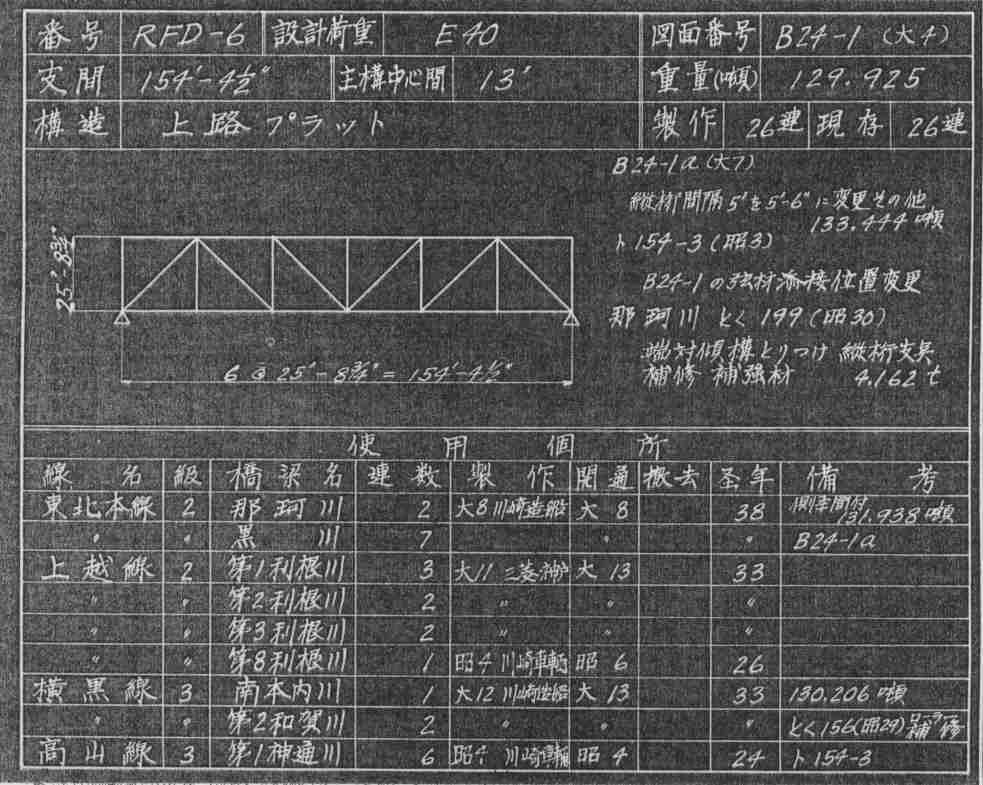 番号 RFD-6 設計荷重 E40 図面番号 B24-1 (大4)
支間 154'-4½" 主構中心間 13' 重量(噸) 129.925
構造 上路プラット 製作 26連 現存 26連
B24-1a (大7)
縦桁間隔5'を5'-6"に変更その他
133.444噸
ト154-3 (昭3)
B24-1の弦材添接位置変更
那珂川 とく199 (昭30)
端対傾構とりつけ 縦桁支点
補修 補強材 4.162t
25'-8¾"
6@25'-8¾"=154'-4½"
使用個所
線名 級 橋梁名 連数 製作 開通 撤去 圣年 備考
東北本線 2 那珂川 2 大8川崎造船 大8 38 側車間付 131.938噸
〃 〃 黒川 7 〃 〃 B24-1a
上越線 2 第1利根川 3 大11 三菱神戸 大13 33
〃 〃 第2利根川 2 〃 〃 〃
〃 〃 第3利根川 2 〃 〃 〃
〃 〃 第8利根川 1 昭4 川崎車輌 昭6 26
横黒線 3 南本内川 1 大12 川崎造船 大13 33 130.206噸
〃 〃 第2和賀川 2 〃 〃 〃 とく156(昭29) 補修
高山線 3 第1神通川 6 昭4 川崎車輌 昭4 24 ト154-3